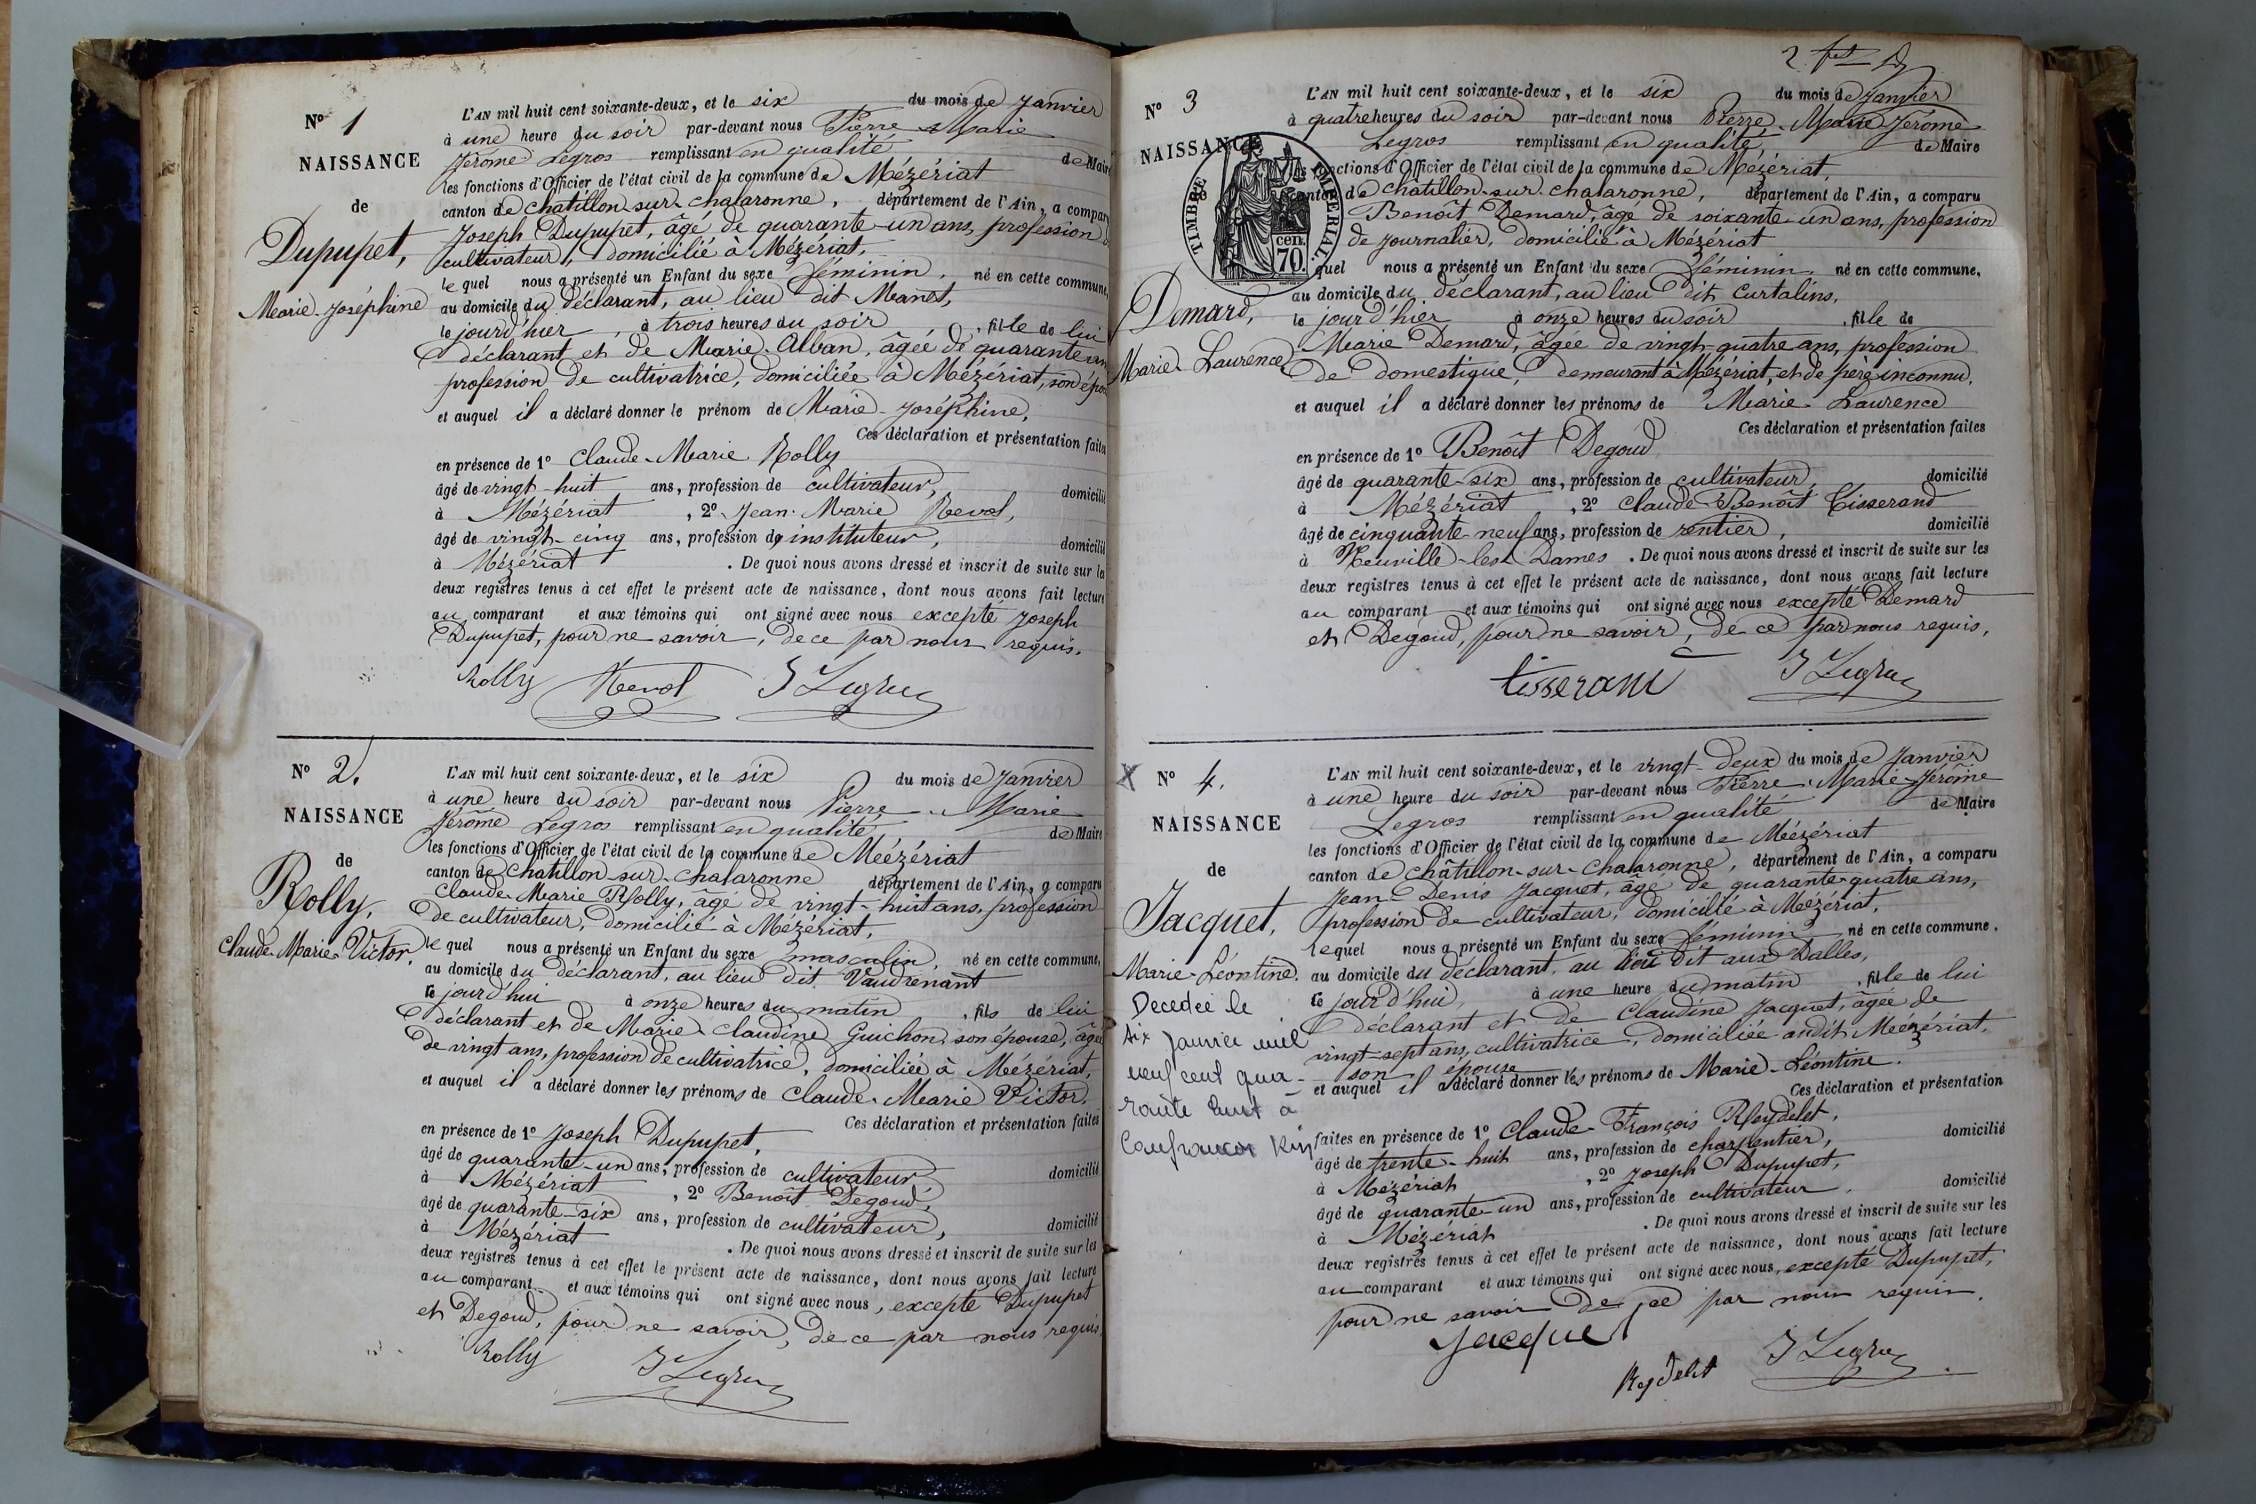 N° 1
NAISSANCE
de
Dupupet,
Marie-Joséphine
L'AN mil huit cent soixante-deux, et le six du mois de Janvier
à une heure du soir par-devant nous Pierre Marie
Jérôme Legros remplissant en qualité de Maire
les fonctions d'Officier de l'état civil de la commune de Mézériat
canton de Châtillon-sur-Chalaronne, département de l'Ain, a comparu
Joseph Dupupet, âgé de quarante-un ans, profession
cultivateur, domicilié à Mézériat,
lequel nous a présenté un Enfant du sexe féminin, né en cette commune,
au domicile du déclarant, au lieu dit
le jourd'hier, à trois heures du soir, fille de lui
déclarant et de Marie Alban, âgée de quarante ans
profession de cultivatrice, domiciliée à Mézériat, son épouse
et auquel il a déclaré donner le prénom de Marie-Joséphine,
Ces déclaration et présentation faites
en présence de 1° Claude-Marie Rolly
âgé de vingt-huit ans, profession de cultivateur, domicilié
à Mézériat, 2° Jean-Marie Revol,
âgé de vingt-cinq ans, profession de instituteur, domicilié
à Mézériat. De quoi nous avons dressé et inscrit de suite sur les
deux registres tenus à cet effet le présent acte de naissance, dont nous avons fait lecture
au comparant et aux témoins qui ont signé avec nous excepté Joseph
Dupupet, pour ne savoir, de ce par nous requis.
Rolly Revol J Legros
N° 2.
NAISSANCE
de
Rolly,
Claude-Marie-Victor.
L'AN mil huit cent soixante-deux, et le six du mois de Janvier
à une heure du soir par-devant nous Pierre Marie
Jérôme Legros remplissant en qualité, de Maire
les fonctions d'Officier de l'état civil de la commune de Mézériat
canton de Chatillon-sur-Chalaronne département de l'Ain, a comparu
Claude-Marie Rolly, âgé de vingt-huit ans, profession
de cultivateur, domicilié à Mézériat,
lequel nous a présenté un Enfant du sexe masculin, né en cette commune,
au domicile du déclarant, au lieu dit Vaudrenant
le jourd'hui à onze heures du matin, fils de lui
déclarant et de Marie-Claudine Guichon, son épouse, âgée
de vingt ans, profession de cultivatrice, domiciliée à Mézériat,
et auquel il a déclaré donner les prénoms de Claude-Marie Victor.
Ces déclaration et présentation faites
en présence de 1° Joseph Dupupet,
âgé de quarante-un ans, profession de cultivateur, domicilié
à Mézériat, 2° Benoît Degoud,
âgé de quarante-six ans, profession de cultivateur, domicilié
à Mézériat. De quoi nous avons dressé et inscrit de suite sur les
deux registres tenus à cet effet le présent acte de naissance, dont nous avons fait lecture
au comparant et aux témoins qui ont signé avec nous, excepté Dupupet
et Degoud, pour ne savoir, de ce par nous requis.
Rolly J Legros
N° 3
NAISSANCE
TIMBRE IMPERIAL.
70. cen.
Demard,
Marie-Laurence
L'AN mil huit cent soixante-deux, et le six du mois de Janvier
à quatre heures du soir par-devant nous Pierre Marie Jérôme
Legros remplissant en qualité, de Maire
fonctions d'Officier de l'état civil de la commune de Mézériat,
canton de Châtillon-sur-Chalaronne, département de l'Ain, a comparu
Benoît Demard, âgé de soixante-un ans, profession
de journalier, domicilié à Mézériat
quel nous a présenté un Enfant du sexe féminin, né en cette commune,
au domicile du déclarant, au lieu dit Curtalins,
le jourd'hier à onze heures du soir, fille de
Marie Demard, âgée de vingt-quatre ans, profession
de domestique, demeurant à Mézériat, et de père inconnu.
et auquel il a déclaré donner les prénoms de Marie-Laurence
Ces déclaration et présentation faites
en présence de 1° Benoît Degoud
âgé de quarante-six ans, profession de cultivateur, domicilié
à Mézériat, 2° Claude-Benoît Tisserand
âgé de cinquante-neuf ans, profession de rentier, domicilié
à Neuville-les-Dames. De quoi nous avons dressé et inscrit de suite sur les
deux registres tenus à cet effet le présent acte de naissance, dont nous avons fait lecture
au comparant et aux témoins qui ont signé avec nous excepté Demard
et Degoud, pour ne savoir, de ce par nous requis,
tisserand J Legros
X N° 4.
NAISSANCE
de
Jacquet,
Marie-Léontine.
Décédée le
six Janvier mil
neuf cent qua-
rante huit à
Confrançon
L'AN mil huit cent soixante-deux, et le vingt-deux du mois de Janvier
à une heure du soir par-devant nous Pierre Marie-Jérôme
Legros remplissant en qualité de Maire
les fonctions d'Officier de l'état civil de la commune de Mézériat
canton de Châtillon-sur-Chalaronne, département de l'Ain, a comparu
Jean-Denis Jacquet, âgé de quarante-quatre ans,
profession de cultivateur, domicilié à Mézériat,
lequel nous a présenté un Enfant du sexe féminin né en cette commune,
au domicile du déclarant, au lieu dit aux Dalles,
le jourd'hui, à une heure du matin, fille de lui
déclarant et de Claudine Jacquet, âgée de
vingt-sept ans, cultivatrice, domiciliée audit Mézériat,
son épouse
et auquel il a déclaré donner les prénoms de Marie-Léontine.
Ces déclaration et présentation
faites en présence de 1° Claude-François Reydelet,
âgé de trente-huit ans, profession de charpentier, domicilié
à Mézériat, 2° Joseph Dupupet,
âgé de quarante-un ans, profession de cultivateur, domicilié
à Mézériat. De quoi nous avons dressé et inscrit de suite sur les
deux registres tenus à cet effet le présent acte de naissance, dont nous avons fait lecture
au comparant et aux témoins qui ont signé avec nous, excepté Dupupet,
pour ne savoir de ce par nous requis.
Jacquet
Reydelet J Legros